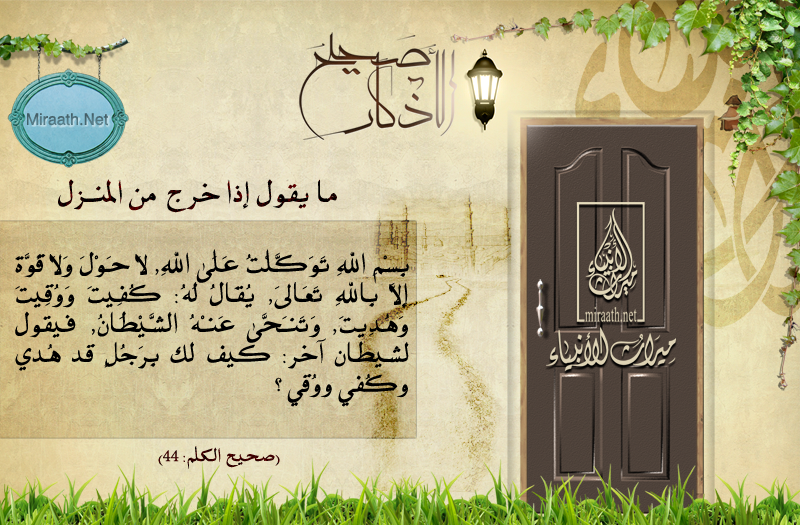 صحيح
الأذكار
Miraath.Net
ما يقول إذا خرج من المنـزل
بِسْمِ اللهِ تَوَكَّلْتُ عَلَى اللهِ, لا حَوْلَ وَلا قوَّة
إلاَّ باللهِ تَعَالىَ, يُقالُ لهُ: كُفِيتَ وَوُقِيتَ
وَهُدِيتَ, وَتَنَحَّى عَنـْهُ الشَّيْطانُ, فيقول
لشيطان آخر: كيف لك برجُلٍ قد هُدي
وكُفي ووُقي ؟
(صحيح الكلم: 44)
ميراث الأنبياء
miraath.net
ميراث الأنبياء